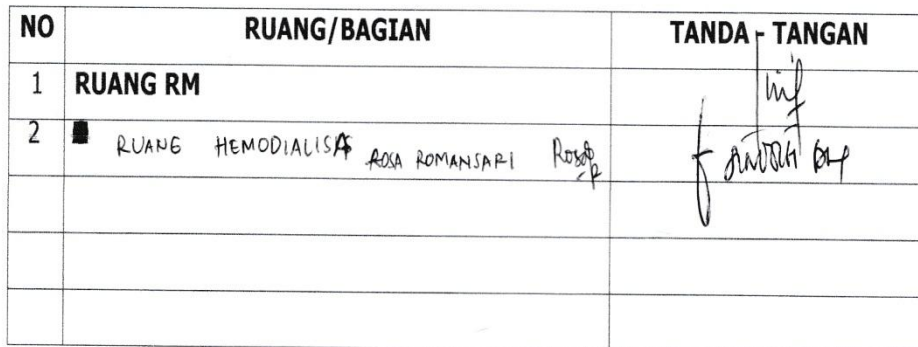 NO RUANG/BAGIAN TANDA - TANGAN
1 RUANG RM
2 RUANG HEMODIALISA ROSA ROMANSARI